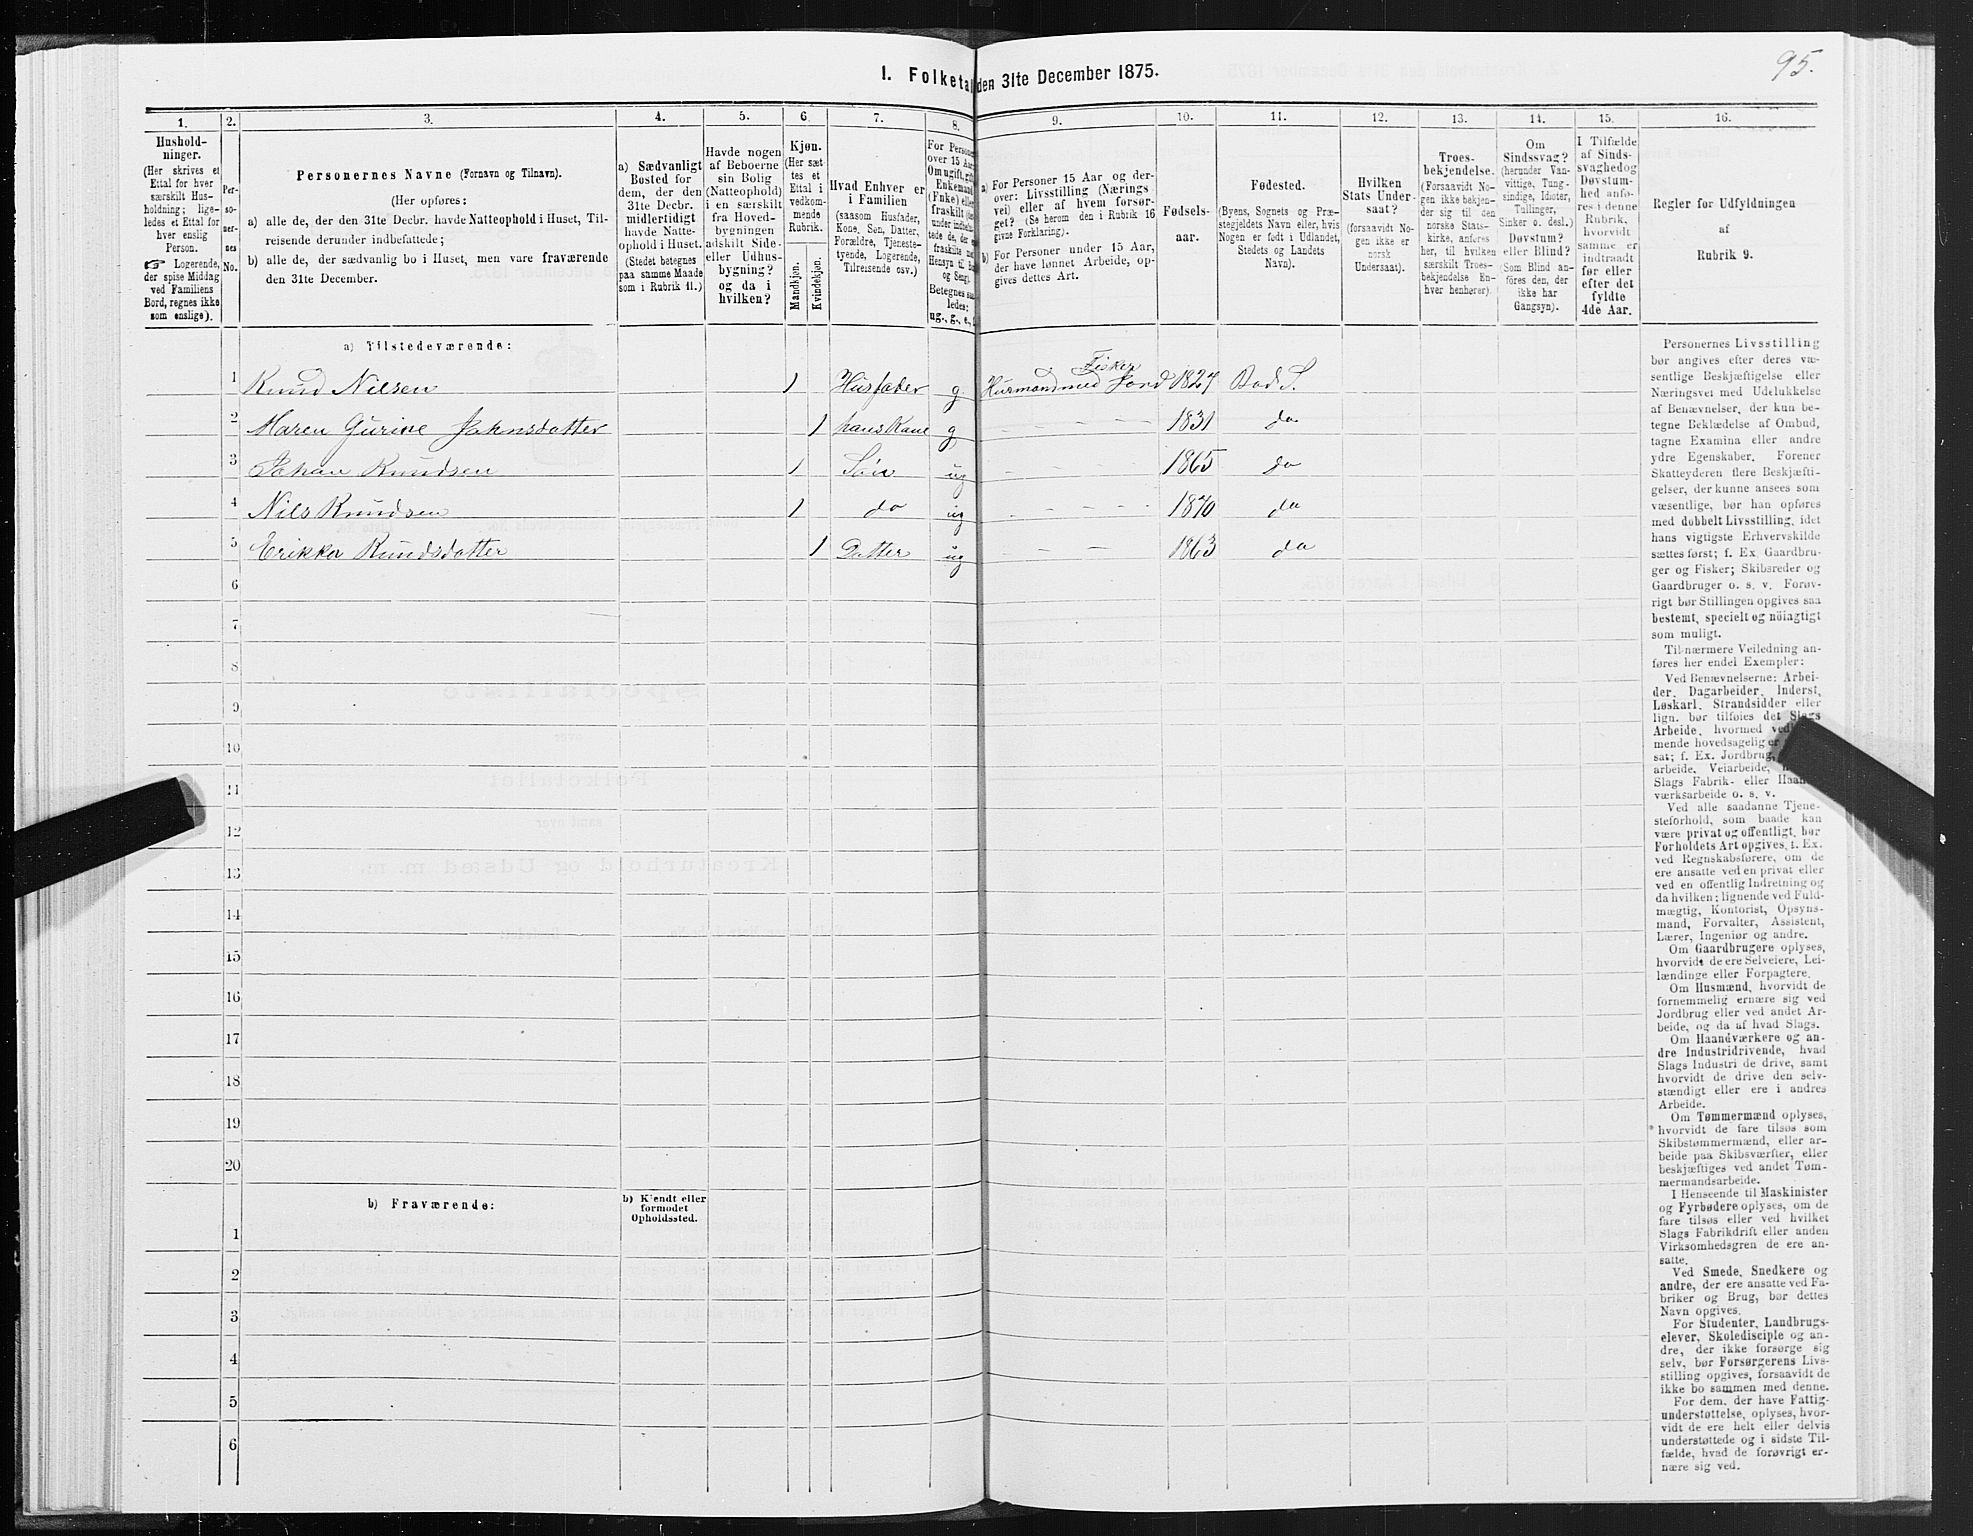 95.
1. Folketal den 31te December 1875.
1. 2. 3. 4. 5. 6. 7. 8. 9. 10. 11. 12. 13. 14. 15. 16.
Hushold-
ninger.
(Her skrives et
Ettal for hver
særskilt Hus-
holdning; lige-
ledes et Ettal for
hver enslig
Person.
☞ Logerende,
der spise Middag
ved Familiens
Bord, regnes ikke
som enslige).
Per-
so-
ner-
nes
No.
Personernes Navne (Fornavn og Tilnavn).
(Her opføres:
a) alle de, der den 31te Decbr. havde Natteophold i Huset, Til-
reisende derunder indbefattede;
b) alle de, der sædvanlig bo i Huset, men vare fraværende
den 31te December.
a) Sædvanligt
Bosted for
dem, der den
31te Decbr.
midlertidigt
havde Natte-
ophold i Huset.
(Stedet betegnes
paa samme Maade
som i Rubrik 11.)
Havde nogen
af Beboerne
sin Bolig
(Natteophold)
i en særskilt
fra Hoved-
bygningen
adskilt Side-
eller Udhus-
bygning?
og da i
hvilken?
Kjøn.
(Her sæt-
tes et
Ettal i
vedkom-
mende
Rubrik.
Mandkjøn.
Kvindekjøn.
Hvad Enhver er
i Familien
(saasom Husfader,
Kone, Søn, Datter,
Forældre, Tjeneste-
tyende, Logerende,
Tilreisende osv.)
For Personer
over 15 Aar
Om ugift, gift
Enkemand
(Enke) eller
fraskilt
Betegnes saa-
ledes:
ug., g., e.,
a) For Personer 15 Aar og der-
over: Livsstilling (Nærings
vei) eller af hvem forsør-
get? (Se herom den i Rubrik 16
givne Forklaring).
b) For Personer under 15 Aar,
der have lønnet Arbeide, op-
gives dettes Art.
Fødsels-
aar.
Fødested.
(Byens, Sognets og Præ-
stegjeldets Navn eller, hvis
Nogen er født i Udlandet,
Stedets og Landets
Navn).
Hvilken
Stats Under-
saat?
(forsaavidt No-
gen ikke er
norsk
Undersaat).
Troes-
bekjendelse.
(Forsaavidt No-
gen ikke bekjen-
der sig til den
norske Stats-
kirke, anføres
her, til hvilken
særskilt Troes-
bekjendelse En-
hver henhører).
Om
Sindssvag?
(herunder Van-
vittige, Tung-
sindige, Idioter,
Tullinger,
Sinker o. desl.)
Døvstum?
eller Blind?
(Som Blind an-
føres den, der
ikke har
Gangsyn).
I Tilfælde
af Sinds-
svaghed og
Døvstum-
hed anfø-
res i denne
Rubrik,
hvorvidt
samme er
indtraadt
før eller
efter det
fyldte
4de Aar.
Regler for Udfyldningen
af
Rubrik 9.
a) Tilstedeværende:
1 Knud Nilsen 1 Husfader g Husmand med Jord Fisker 1827 Bod S.
2 Maren Gurine Johnsdatter 1 hans Kone g - - - - 1831 do
3 Johan Knudsen 1 Søn ug - - - - 1865 do
4 Nils Knudsen 1 do ug - - - - 1870 do
5 Erikka Knudsdatter 1 Datter ug - - - 1863 do
6
7
8
9
10
11
12
13
14
15
16
17
18
19
20
b) Fraværende:
b) Kjendt eller
formodet
Opholdssted.
1
2
3
4
5
6
Personernes Livsstilling
bør angives efter deres væ-
sentlige Beskjæftigelse eller
Næringsvei med Udelukkelse
af Benævnelser, der kun be-
tegne Beklædelse af Ombud,
tagne Examina eller andre
ydre Egenskaber. Forener
Skatteyderen flere Beskjæfti-
gelser, der kunne ansees som
væsentlige, bør han opføres
med dobbelt Livsstilling, idet
hans vigtigste Erhvervskilde
sættes først; f. Ex. Gaardbru-
ger og Fisker; Skibsreder og
Gaardbruger o. s. v. Forøv-
rigt bør Stillingen opgives saa
bestemt, specielt og nöiagtigt
som muligt.
Til nærmere Veiledning an-
føres her endel Exempler:
Ved Benævnelserne: Arbei-
der, Dagarbeider, Inderst,
Løskarl, Strandsidder eller
lign. bør tilføies det Slags
Arbeide, hvormed ved-
mende hovedsagelig er
sat; f. Ex. Jordbrug,
arbeide, Veiarbeide,
Slags Fabrik- eller Haand-
værksarbeide o. s. v.
Ved alle saadanne Tjene-
steforhold, som baade kan
være privat og offentligt, bør
Forholdets Art opgives, f. Ex.
ved Regnskabsførere, om de
ere ansatte ved en privat eller
ved en offentlig Indretning og
da hvilken; lignende ved Fuld-
mægtig, Kontorist, Opsyns-
mand, Forvalter, Assistent,
Lærer, Ingeniør og andre.
Om Gaardbrugere oplyses,
hvorvidt de ere Selveiere, Lei-
lændinge eller Forpagtere.
Om Husmænd, hvorvidt de
fornemmelig ernære sig ved
Jordbrug eller ved andet Ar-
beide, og da af hvad Slags.
Om Haandværkere og an-
dre Industridrivende, hvad
Slags Industri de drive, samt
hvorvidt de drive den selv-
stændigt eller ere i andres
Arbeide.
Om Tømmermænd oplyses,
hvorvidt de fare tilsøs som
Skibstømmermænd, eller ar-
beide paa Skibsværfter, eller
beskjæftiges ved andet Tøm-
mermandsarbeide.
I Henseende til Maskinister
og Fyrbødere oplyses, om de
fare tilsøs eller ved hvilket
Slags Fabrikdrift eller anden
Virksomhedsgren de ere an-
satte.
Ved Smede, Snedkere og
andre, der ere ansatte ved Fa-
briker og Brug, bør dettes
Navn opgives.
For Studenter, Landbrugs-
elever, Skoledisciple og an-
dre, der ikke forsørge sig
selv, bør Forsørgerens Livs-
stilling opgives, forsaavidt de
ikke bo sammen med denne.
For dem, der have Fattig-
understøttelse, oplyses, hvor-
vidt de ere helt eller delvis
understøttede og i sidste Til-
fælde, hvad de forøvrigt er-
nære sig ved.